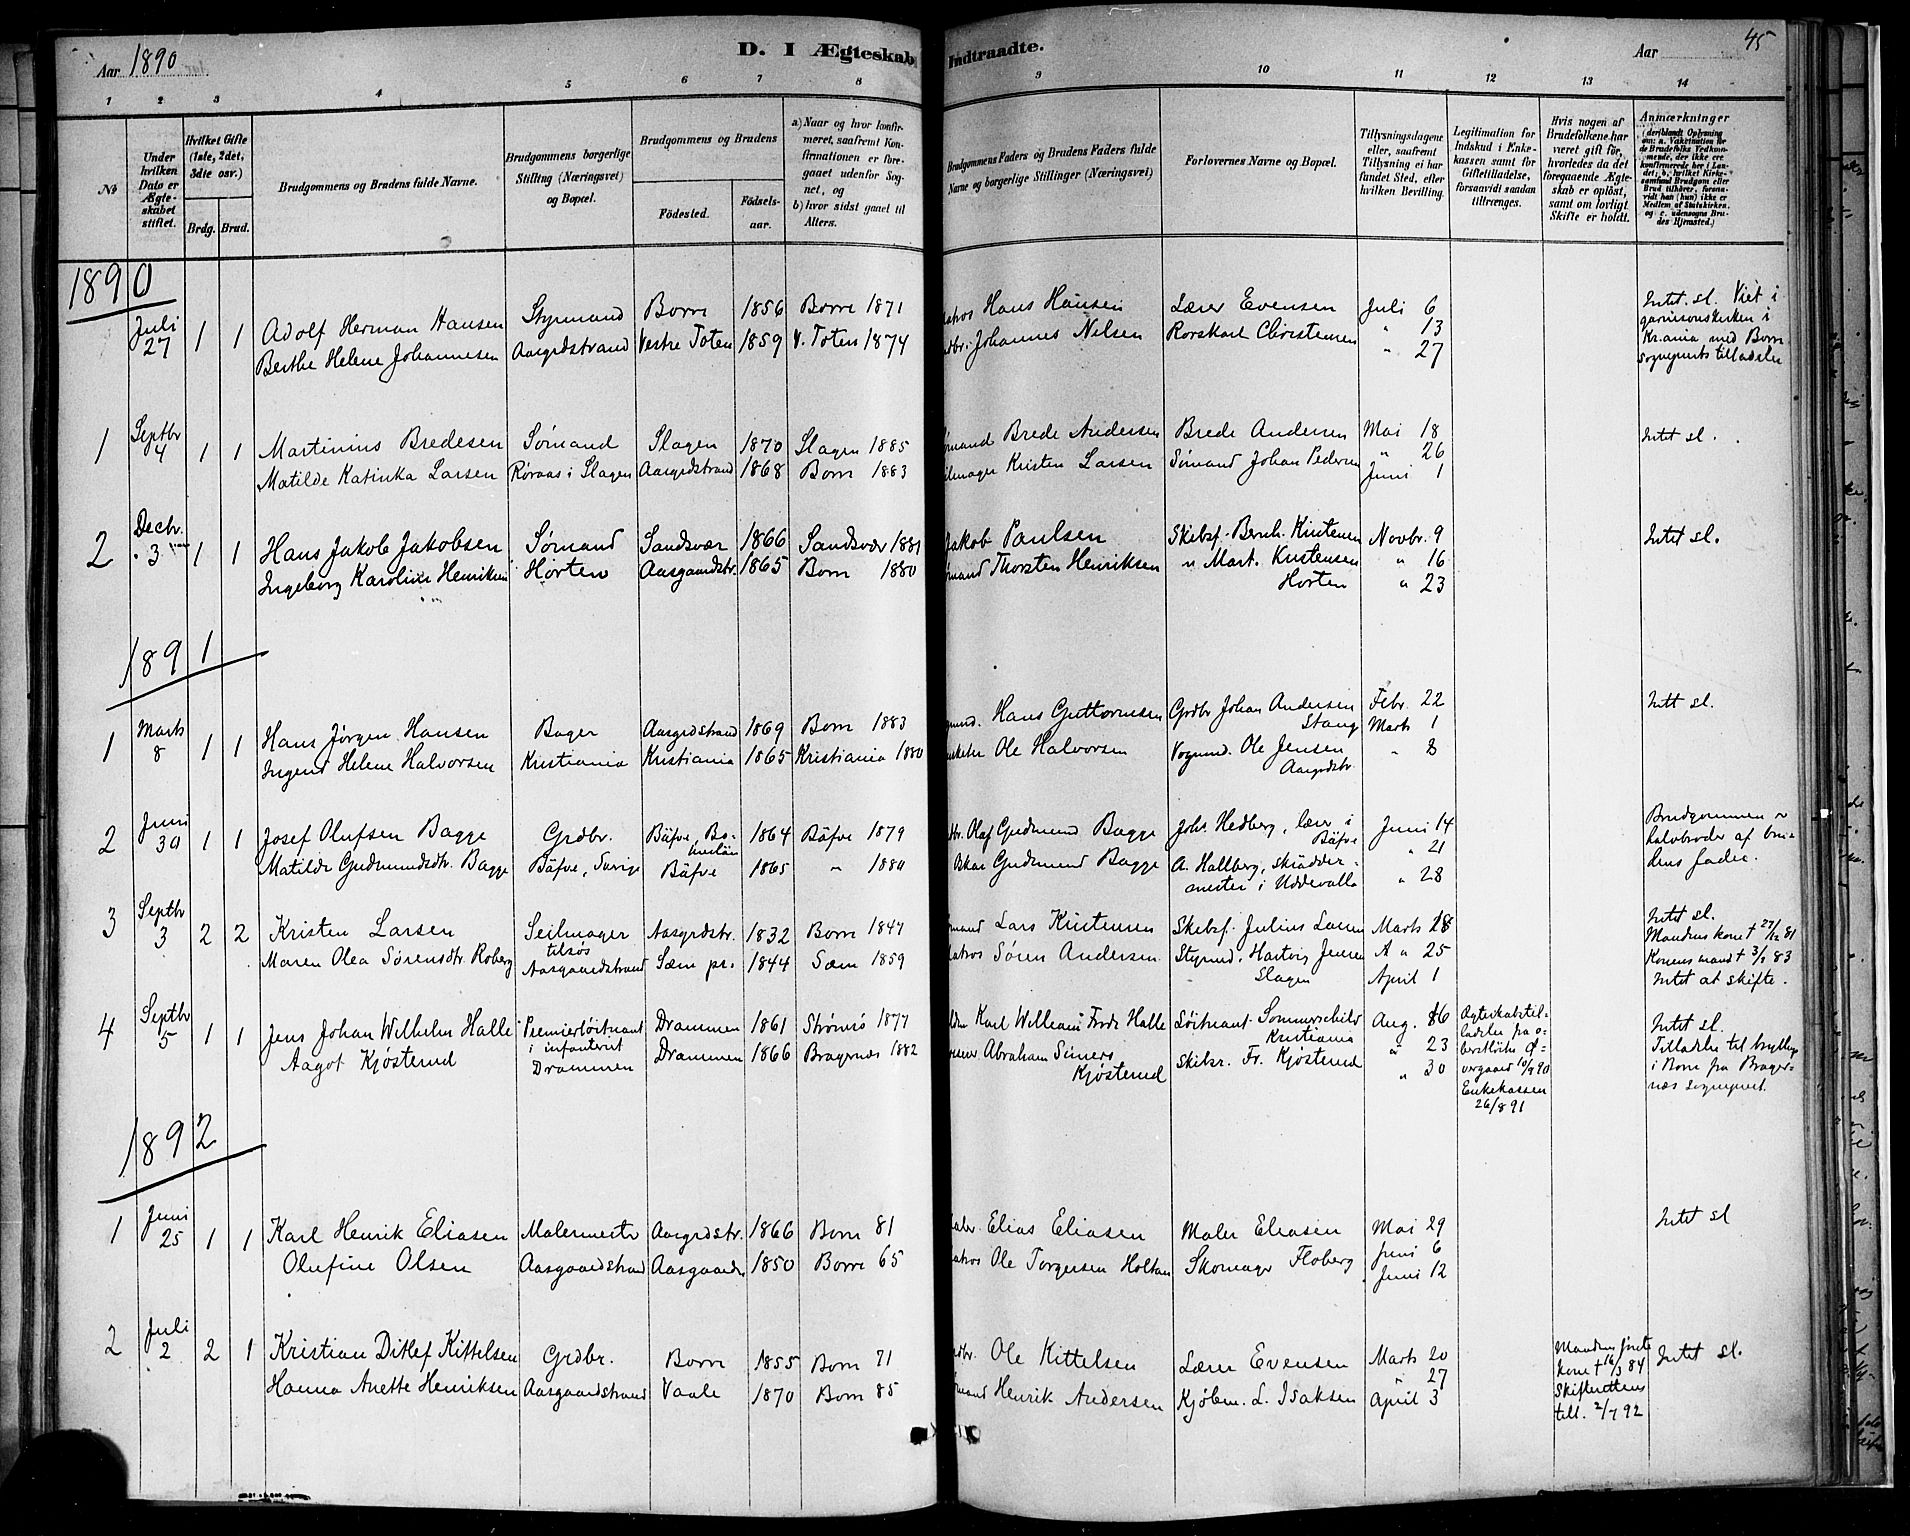 Aar 1890
D. I Ægteskab Indtraadte.
Aar
45
1 2 3 4 5 6 7 8 9 10 11 12 13 14
No
Under hvilken Dato er Ægteskabet stiftet.
Hvilket Gifte (1ste, 2det, 3die osv.)
Brdg. Brud.
Brudgommens og Brudens fulde Navne.
Brudgommens borgerlige Stilling (Næringsvei) og Bopæl.
Brudgommens og Brudens
Fødested.
Fødsels-aar.
a) Naar og hvor konfirmeret, saafremt Konfirmationen er foregaaet udenfor Sognet, og
b) hvor sidst gaaet til Alters.
Brudgommens Faders og Brudens Faders fulde Navne og borgerlige Stillinger (Næringsvei)
Forlovernes Navne og Bopæl.
Tillysningsdagene eller, saafremt Tillysning ei har fundet Sted, efter hvilken Bevilling.
Legitimation for Indskud i Enkekassen samt for Giftetilladelse, forsaavidt saadan tiltrænges.
Hvis nogen af Brudefolkene har været gift før, hvorledes da det foregaaende Ægteskab er opløst, samt om lovligt Skifte er holdt.
Anmærkninger
(deriblandt Oplysning om: a. Vaksination for de Brudefolks Vedkommende, der ikke ere konfirmerede her i Landet; b. hvilket Kirkesamfund Brudgom eller Brud tilhører, forsaavidt han (hun) ikke er Medlem af Statskirken. og c. udensogns Brudes Hjemsted.)
1890
Juli 27 1 1 Adolf Herman Hansen Styrmand Borre 1856 Borre 1871 Hans Hansen Lærer Evensen Juli 6
Berthe Helene Johannesen Aasgrdstrand Vestre Toten 1859 V. Toten 1874 Johannes Nilsen Rorskarl Christensen " 13
" 27
Intet sl. Viet i garnisonskirken i Kr.ania med Borre sogneprests tilladelse
1 Septbr 4 1 1 Martinius Bredesen Sømand Slagen 1870 Slagen 1885 Brede Andersen Brede Andersen Mai 18
Matilde Katinka Larsen Røraas i Slagen Aasgrdstrand 1868 Borre 1883 Kristen Larsen Sømand Johan Pedersen " 26
Juni 1
Intet sl.
2 Decbr. 3 1 1 Hans Jakob Jakobsen Sømand Sandsvær 1866 Sandsvær 1881 Jakob Paulsen Skibsf. Bernh. Kristensen Novbr. 9
Ingeborg Karoline Henriksen Horten Aasgaardstr. 1865 Borre 1880 Thorsten Henriksen " Mart. Kristensen " 16
Horten " 23
Intet sl.
1891
1 Marts 8 1 1 Hans Jørgen Hansen Bager Aasgrdstrand 1869 Borre 1883 Hans Guttormsen Grdbr Johan Andersen Stang Febr. 22
Marts 1
Ingerd Helene Halvorsen Kristiania Kristiania 1865 Kristiania 1880 Ole Halvorsen Vognmd. Ole Jensen Aasgrdstr. " 8
Intt sl.
2 Juni 30 1 1 Josef Olufsen Bagge Grdbr. Bäfve, Bohuslän 1864 Bäfve 1879 Olaf Gudmund Bagge Johs. Hedberg, lærer i Bäfve Juni 14
" 21
Matilde Gudmundsdtr. Bagge Bäfve, Sverige Bäfve 1865 " 1880 Oskar Gudmund Bagge A. Hallberg, skräddermester i Uddevalla " 28
Brudgommen halvbroder af brudens fader.
3 Septbr 3 2 2 Kristen Larsen Seilmager Aasgrdstr. 1832 Borre 1847 Lars Kristensen Skibsf. Julius Larsen Marts 18
Maren Olea Sørensdtr. Roberg tilsøs Aasgaardstrand Sæm pr. 1844 Sæm 1859 Søren Andersen Styrmd. Hartvig Jensen Slagen " 25
April 1
Intet sl. Mandens kone † 27/12 81 Konens mand † 3/9 83 Intet at skifte.
4 Septbr 5 1 1 Jens Johan Wilhelm Halle Premierløitnant i infanteriet Drammen 1861 Strømsø 1877 Karl William Fredr Halle Løitnant Sommerschild Kristiania Aug. 16
" 23
Aagot Kjøsterud Drammen Drammen 1866 Bragernes 1882 Abraham Simers Kjøsterud Skibsr. Fr. Kjøsterud " 30
Ægteskabstilladelse fra oberstløitn. Øvergaard 10/9 90 Enkekassen 26/8 91
Intet sl. Tilladelse til bryllup i Borre fra Bragernæs sogneprest.
1892
1 Juni 25 1 1 Karl Henrik Eliasen Malermester Aasgrdstr. 1866 Borre 81 Elias Eliasen Maler Eliasen Mai 29
Olufine Olsen Aasgaardstrand Aasgaardstr 1850 Borre 65 Ole Torgersen Holtan Skomager Floberg Juni 6
Juni 12
Intet sl
2 Juli 2 2 1 Kristian Ditlef Kittelsen Grdbr. Borre 1855 Borre 71 Ole Kittelsen Lærer Evensen Marts 20
" 27
Hanna Anette Henriksen Aasgaardstrand Vaale 1870 Borre 85 Henrik Andersen Kjøbm. L. Isaksen April 3
Mandens første kone † 16/3 84 Skifterettens till. 2/7 92
Intet sl.